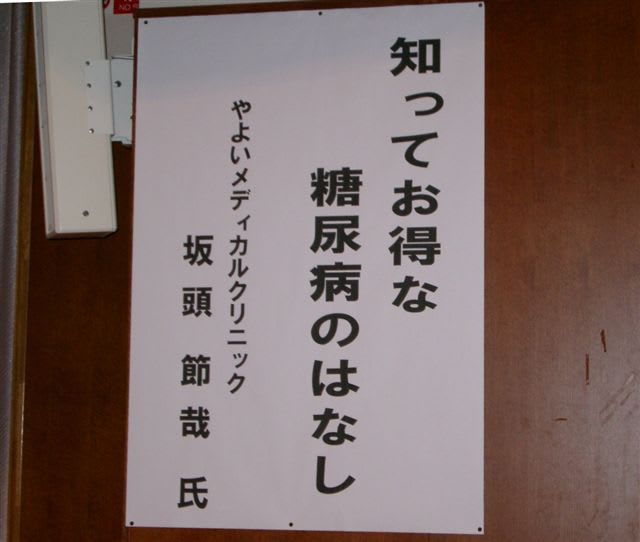 知ってお得な
糖尿病のはなし
やよいメディカルクリニック
坂頭 節哉 氏